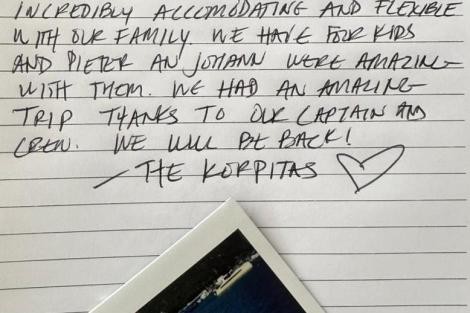 INCREDIBLY ACCOMODATING AND FLEXIBLE
WITH OUR FAMILY. WE HAVE FOUR KIDS
AND PIETER AN JOHANN WERE AMAZING
WITH THEM. WE HAD AN AMAZING
TRIP THANKS TO OUR CAPTAIN AND
CREW. WE WILL BE BACK!
— THE KORPITAS ♡